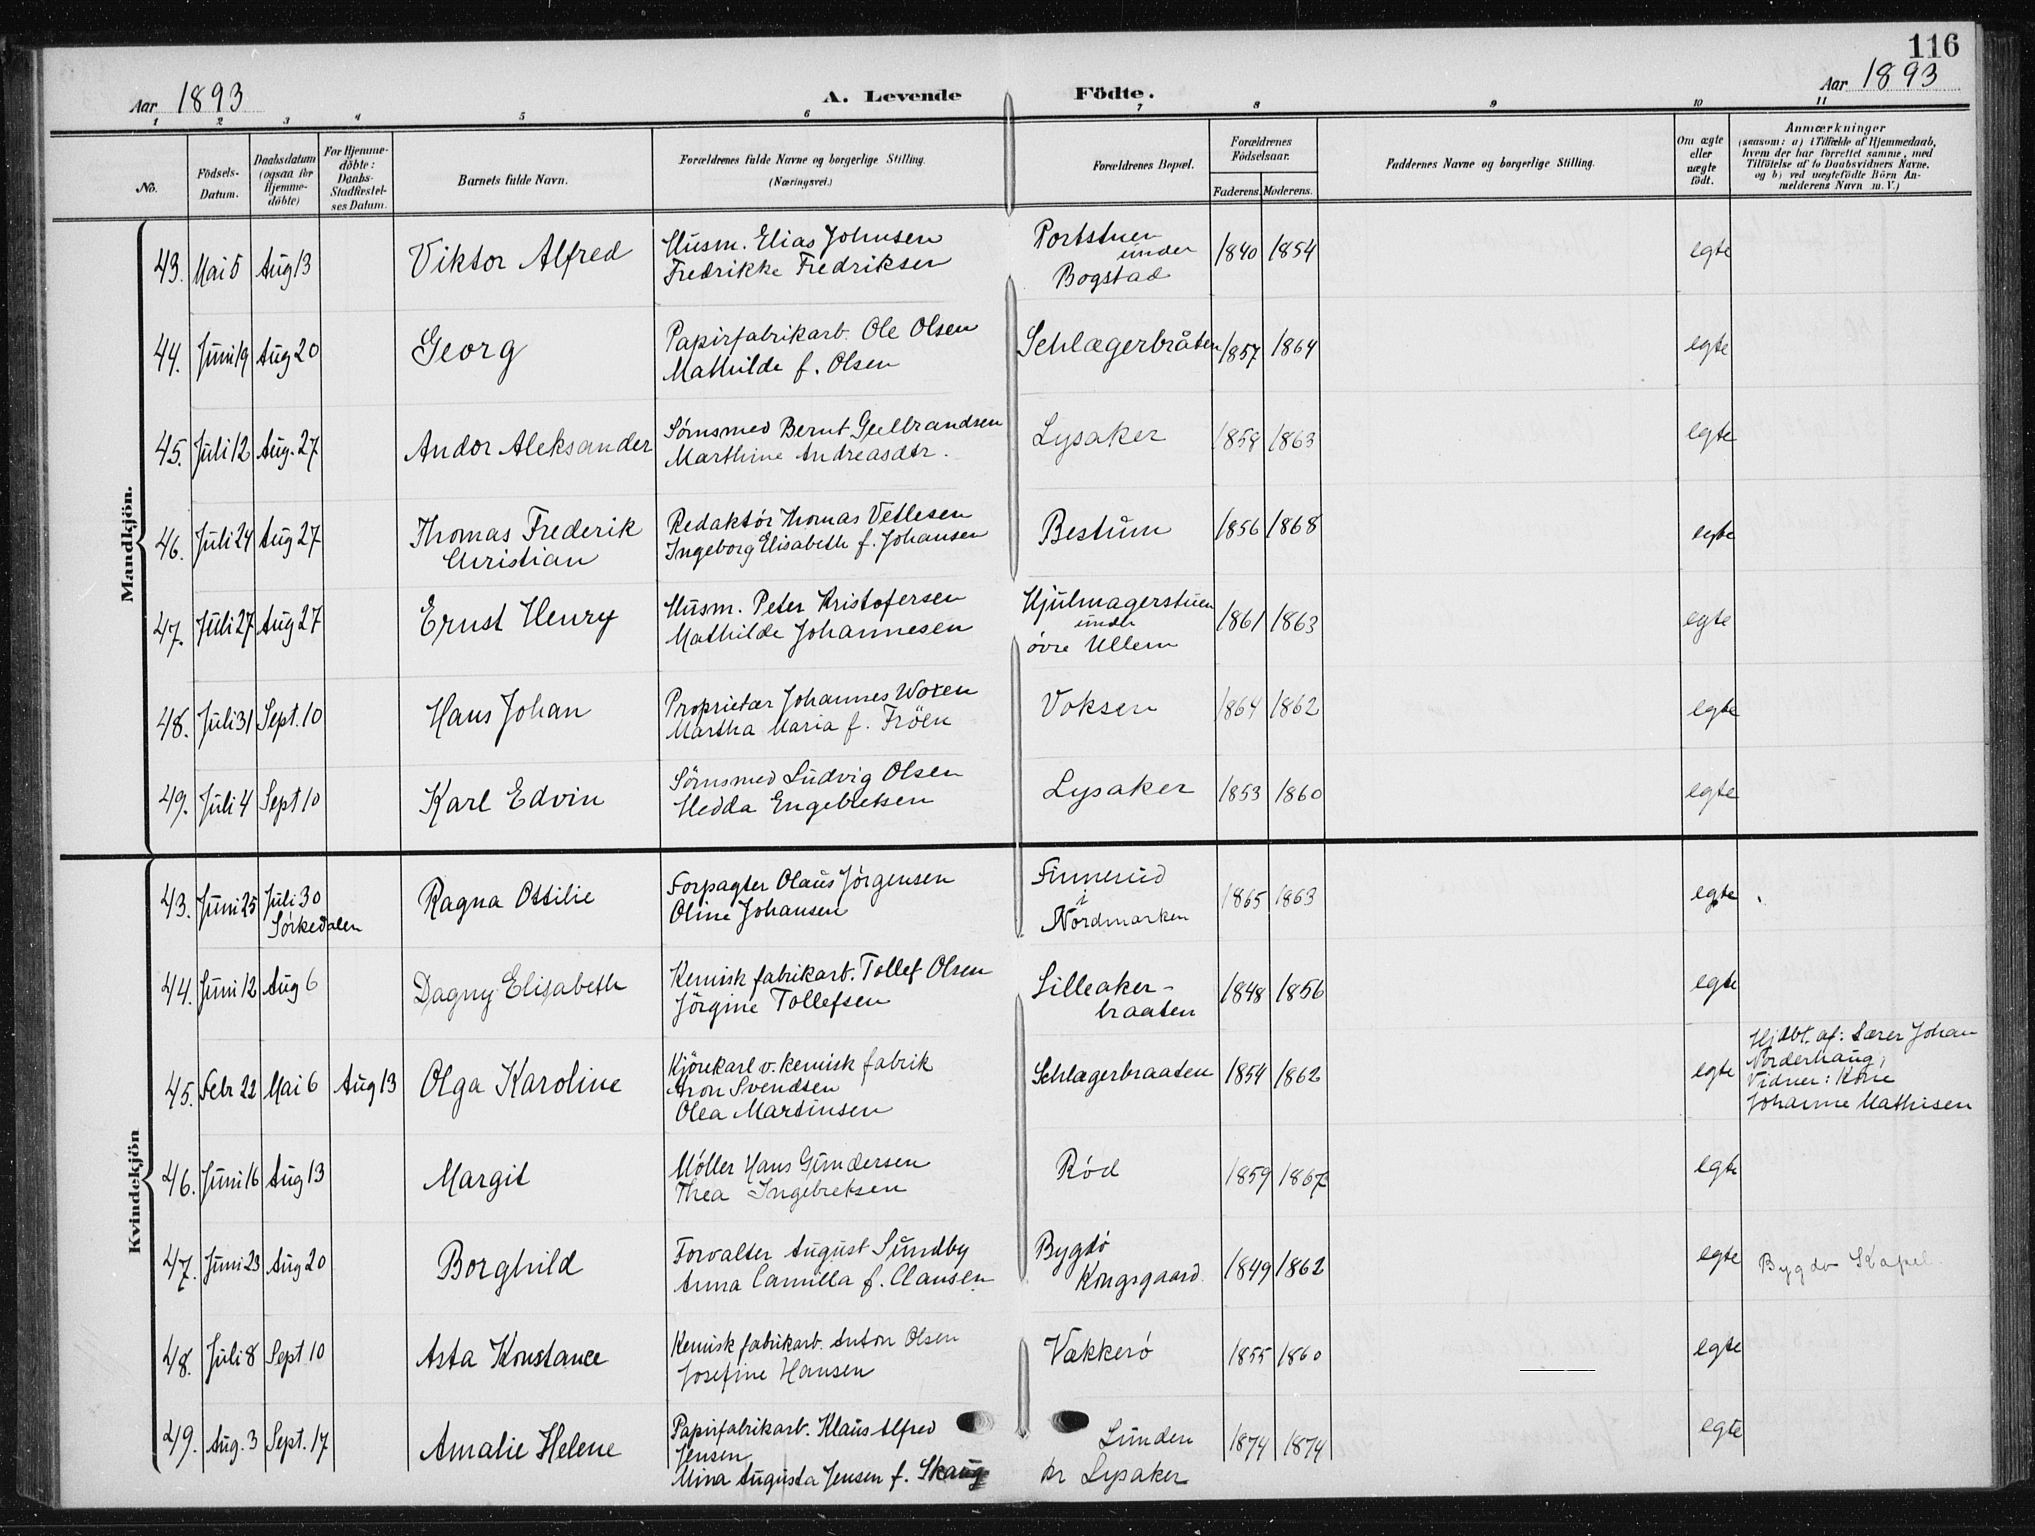 116
Aar 1893 A. Levende Födte. Aar 1893
1 2 3 4 5 6 7 8 9 10 11
No. Födsels-Datum. Daabsdatum (ogsaa for Hjemme-döbte) For Hjemme-döbte: Daabs-Stadfæstel-ses Datum. Barnets fulde Navn. Forældrenes fulde Navne og borgerlige Stilling. (Næringsvei.) Forældrenes Bopæl. Forældrenes Födselsaar. Faderens. Moderens. Faddernes Navne og borgerlige Stilling. Om ægte eller uægte födt. Anmærkninger (saasom: a) i Tilfælde af Hjemmedaab, hvem der har forrettet samme, med Tilföielse af to Daabsvidners Navne. og b) ved uægtefödte Börn An-melderens Navn m. V.)
Mandkjön.
43. Mai 5 Aug 13 Viktor Alfred Husm. Elias Johnsen 1840 1854 egte
Fredrikke Fredriksen
Portstuen
under
Bogstad
44. Juni 19 Aug 20 Georg Papirfabrikarb. Ole Olsen Schlagerbråten 1857 1864 egte
Mathilde f. Olsen
45. Juli 12 Aug. 27 Andor Aleksander Sømsmed Bernt Gulbrandsen Lysaker 1858 1863 egte
Marthine Andreasdtr.
46. Juli 24 Aug 27 Thomas Frederik Redaktør Thomas Vetlesen Bestum 1856 1868 egte
Christian Ingeborg Elisabeth f. Johansen
47. Juli 27 Aug 27 Ernst Henry Husm. Peter Kristofersen Hjulmagerstuen 1861 1863 egte
Mathilde Johannesen under
øvre Ullern
48. Juli 31 Sept. 10 Hans Johan Proprietær Johannes Woxen Voksen 1864 1862 egte
Martha Maria f. Fröen
49. Juli 4 Sept 10 Karl Edvin Sømsmed Ludvig Olsen Lysaker 1853 1860 egte
Hedda Engebretsen
Kvindekjön
43. Juni 25 Juli 30 Ragna Ottilie Forpagter Olaus Jørgensen Finnerud 1865 1863 egte
Sørkedalen Oline Johansen i
Nordmarken
44. Juni 12 Aug 6 Dagny Elisabeth Kemisk fabrikarb. Tollef Olsen Lilleaker- 1848 1856 egte
Jörgine Tollefsen braaten
45. Febr 22 Mai 6 Aug 13 Olga Karoline Kjörekarl v. kemisk fabrik Schlagerbraaten 1854 1862 egte
Aron Svendsen
Olea Martinsen
Hjdbt. af: Lærer Johan
Norderhaug,
Vidner: Kone
Johanne Mathisen
46. Juni 16 Aug 13 Margit Møller Hans Gundersen Rød 1859 1867 egte
Thea Ingebretsen
47. Juni 23 Aug 20 Borghild Forvalter August Sundby Bygdö 1849 1862 egte Bygdø Kapel.
Anna Camilla f. Clausen Kongsgaard
48. Juli 8 Sept 10 Asta Konstance Kemisk fabrikarb. Anton Olsen Vækkerö 1855 1860 egte
Josefine Hansen
49. Aug. 3 Sept. 17 Amalie Helene Papirfabrikarb. Klaus Alfred Lunden 1874 1874 egte
Jensen
Mina Augusta Jensen f. Skaug pr Lysaker